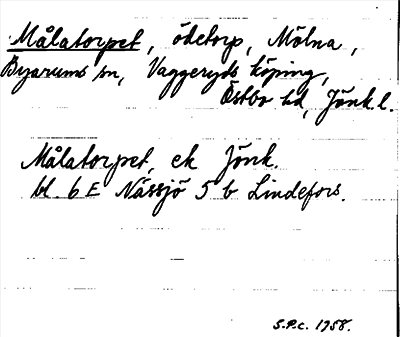 Målatorpet, ödetorp, Mölna,
Byarums sn, Vaggeryds köping,
Östbo hd, Jönk. l.
Målatorpet, ek Jönk.
bl. 6 E Nässjö 5 b Lindefors.
S.P.C. 1958.